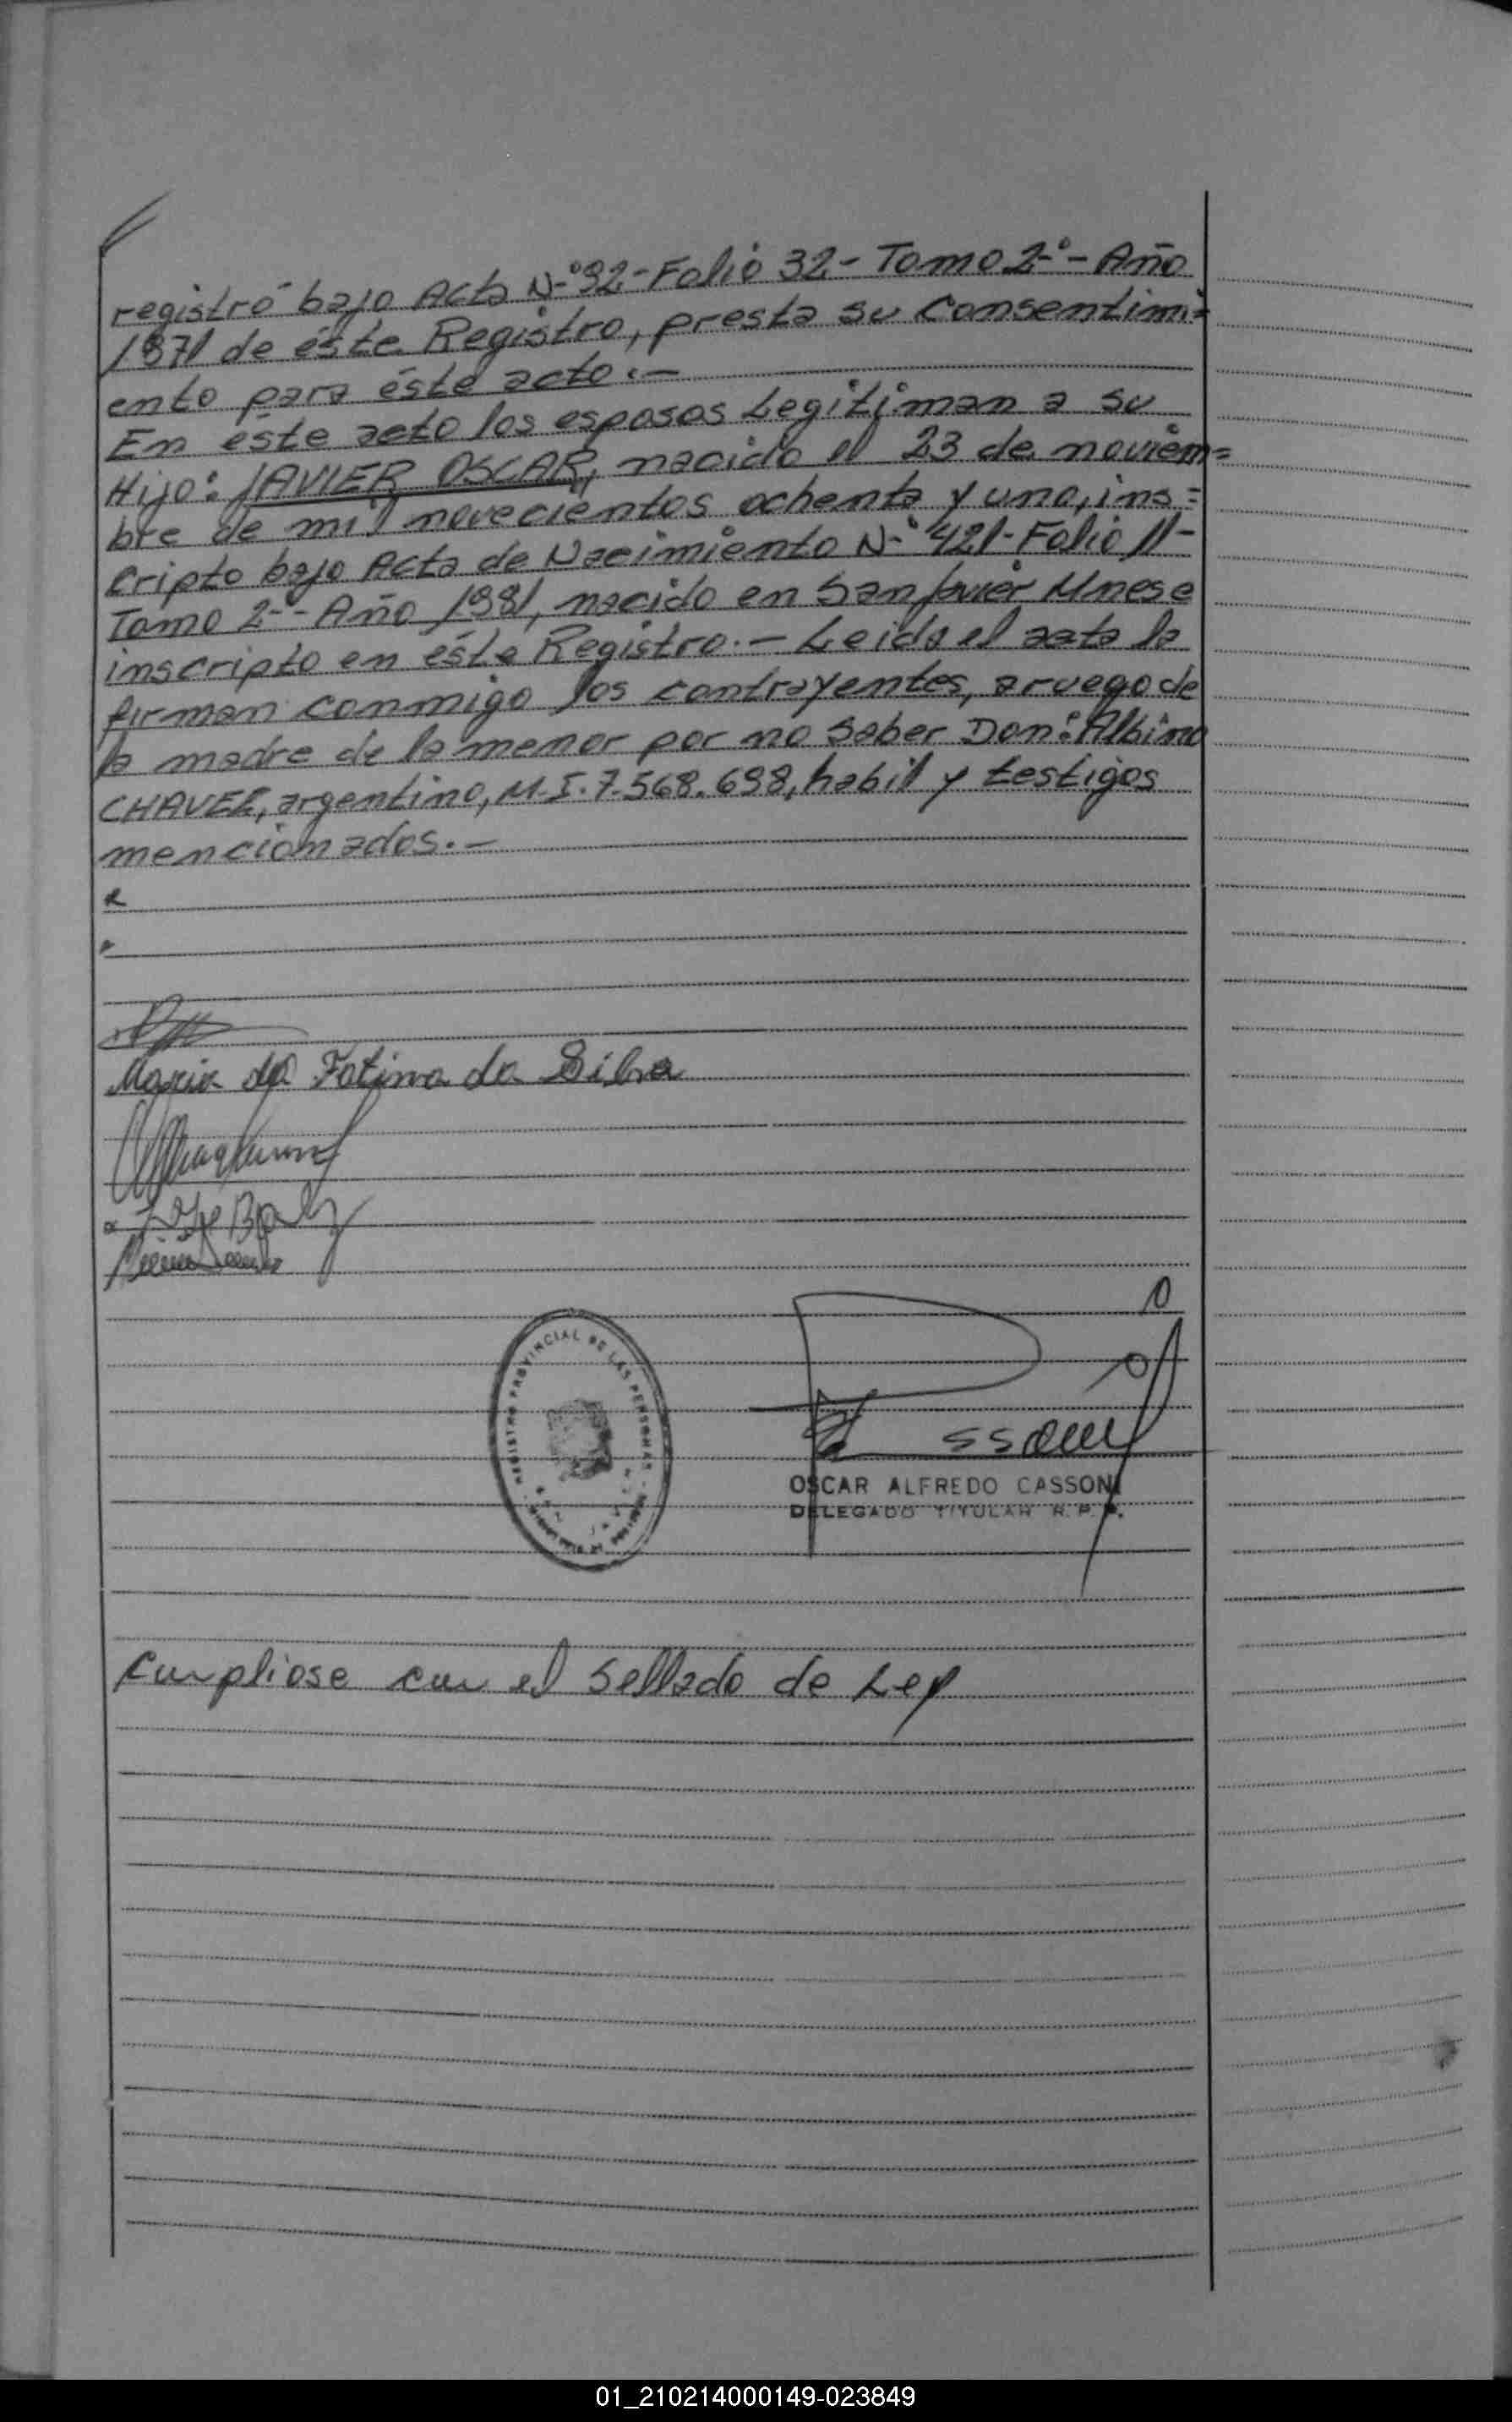 registró bajo Acta N-° 92-Folio 32- Tomo 2-°- Año
1971 de éste Registro, presta su Consentimi=
ento para éste acto.-
En este acto los esposos Legitiman a su
Hijo: JAVIER OSCAR, nacido el 23 de noviem=
bre de mil novecientos ochenta y uno, ins=
cripto bajo Acta de Nacimiento N-° 421-Folio 11-
Tomo 2-°- Año 1981, nacido en San Javier Mnes e
inscripto en éste Registro.- Leida el acta la
firman conmigo los contrayentes, a ruego de
la madre de la menor por no saber Don: Albino
CHAVEZ, argentino, M.I. 7.568.698, habil y testigos
mencionados.-
Maria da Fatima da Silva
REGISTRO PROVINCIAL DE LAS PERSONAS
OSCAR ALFREDO CASSONI
DELEGADO TITULAR R. P. P.
Cumpliose con el Sellado de Ley
01_210214000149-023849